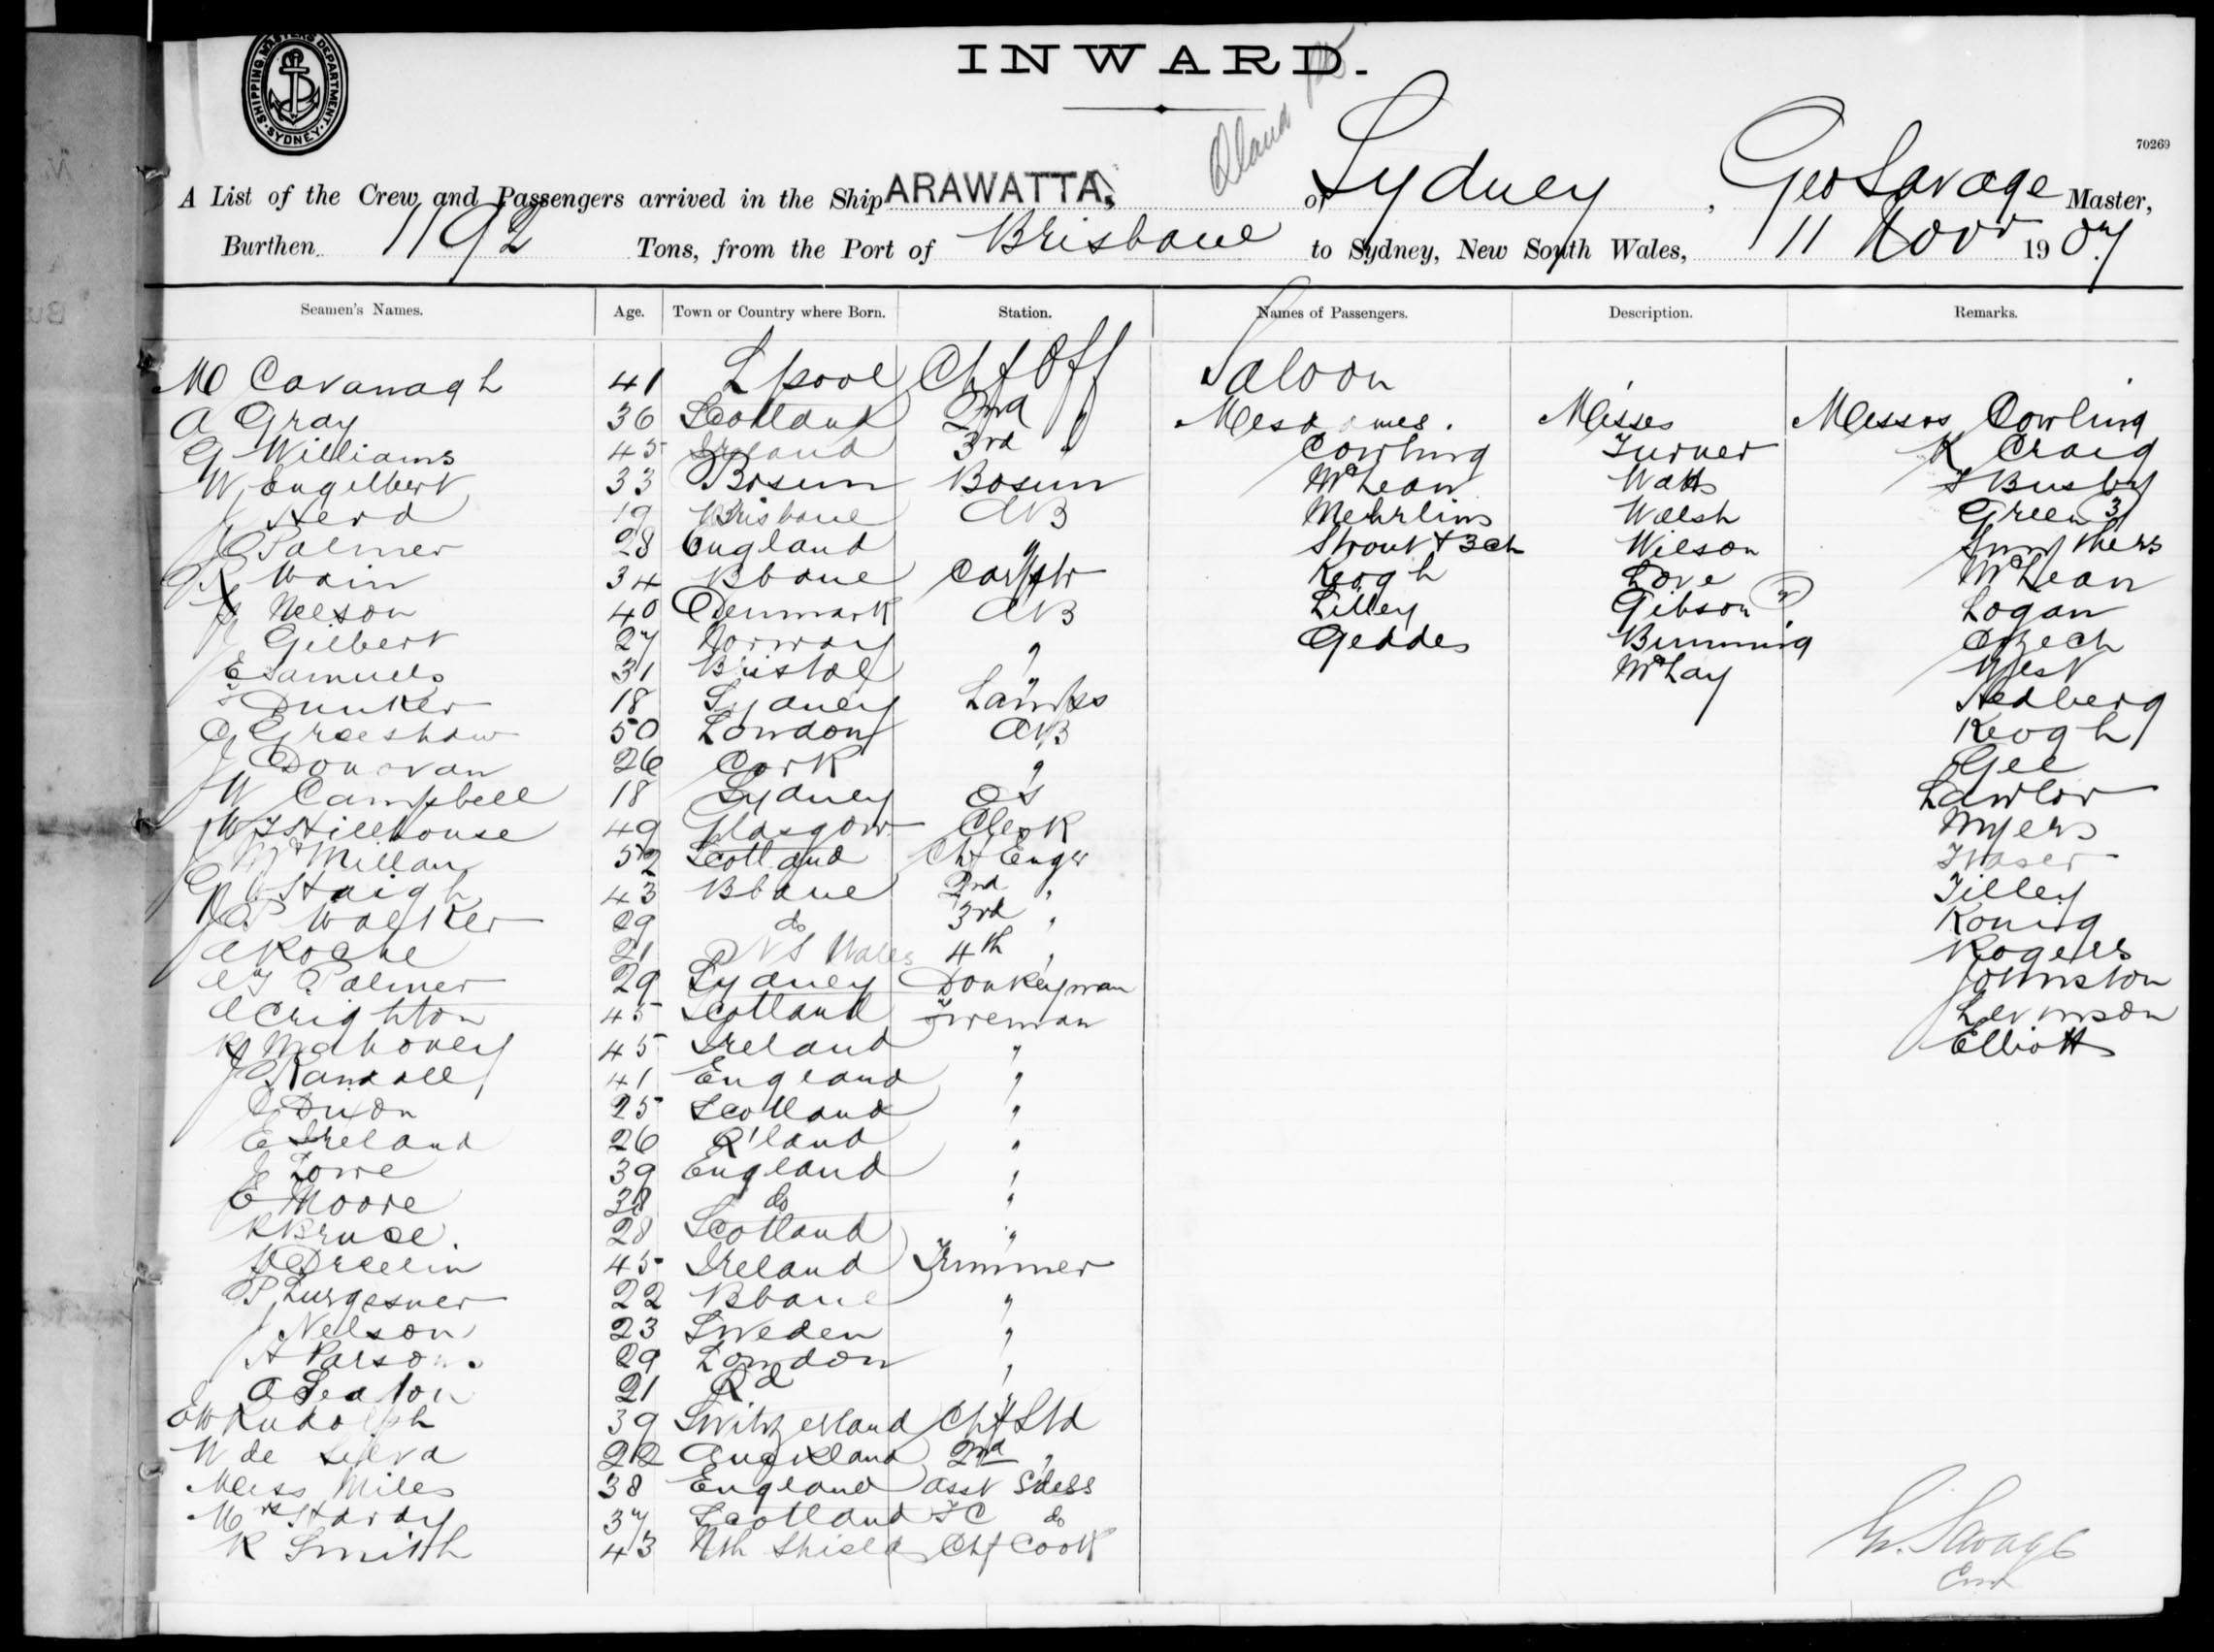 INWARD.
SHIPPING MASTERS DEPARTMENT
SYDNEY
70269
A List of the Crew and Passengers arrived in the Ship ARAWATTA, of Sydney, Geo Savage Master,
Burthen 1192 Tons, from the Port of Brisbane to Sydney, New South Wales, 11 Novr 1907
Seamen's Names. Age. Town or Country where Born. Station. Names of Passengers. Description. Remarks.
M Cavanagh 41 L'pool Chf Off Saloon
A Gray 36 Scotland 2nd " Mesdames. Misses Messrs Cowling
G Williams 45 Ireland 3rd " Cowling Turner K Craig
W Engelbert 33 Bosun Bosun McLean Watts Busby
J Herd 19 Brisbane AB Mehrlins Walsh Green 3
J Palmer 28 England " Strout + 3 ch Wilson
Wain 34 Bbane Keogh Love McLean
Nelson 40 Denmark AB Lilley Gibson Logan
J Gilbert 27 Norway " Geddes Binning Czech
E Samuels 31 Bristol " McLay West
Dunker 18 Sydney Lamps Hedberg
G Graeshaw 50 London AB Keogh
J Donovan 26 Cork " Gee
W Campbell 18 Sydney OS Lawlor
W Hillhouse 49 Glasgow Clerk Myers
McMillan 52 Scotland Chf Enger Fraser
Haigh 43 Bbane 2nd " Tilley
J P Walker 29 do 3rd " Konig
A Roche 21 N S Wales 4th " Rogers
Palmer 29 Sydney Donkeyman Johnston
A Crighton 45 Scotland Fireman Levinson
Mahoney 45 Ireland " Elliott
J Randall 41 England "
G Dixon 25 Scotland "
E Ireland 26 Q'land "
J Lowe 39 England "
E Moore 38 do "
R Bruce. 28 Scotland "
45 Ireland Trimmer
P 22 Bbane "
J Nelson 23 Sweden "
A Parsons 29 London "
A Seaton 21 Qd "
E W Rudolph 39 Switzerland Chf Std
W de Silva 22 2nd "
Miss Miles 38 England asst Sdess
Mrs Hardy 37 Scotland FC do
R Smith 43 Nth Shields Chf Cook
G. Savage